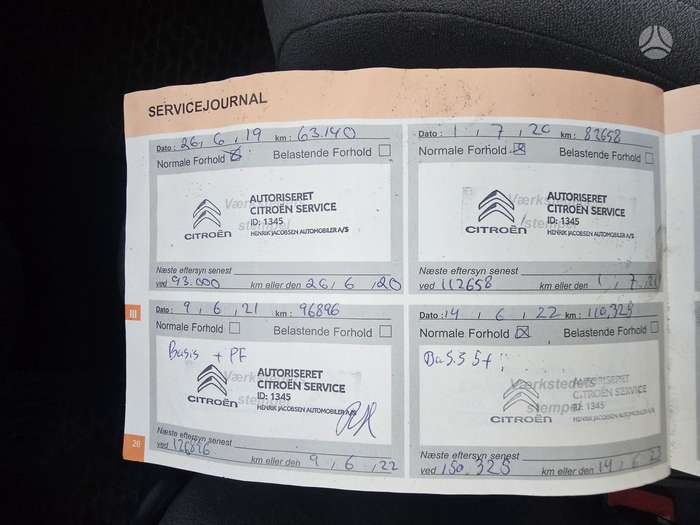 SERVICEJOURNAL
Dato : 26, 6, 19 km : 63.140
Normale Forhold Belastende Forhold
Værksteds
stempel
AUTORISERET
CITROËN SERVICE
ID: 1345
HENRIK JACOBSEN AUTOMOBILER A/S
CITROËN
Næste eftersyn senest
ved 93.000 km eller den 26, 6, 20
Dato : 1, 7, 20 km : 82658
Normale Forhold Belastende Forhold
Værksteds
stempel
AUTORISERET
CITROËN SERVICE
ID: 1345
HENRIK JACOBSEN AUTOMOBILER A/S
CITROËN
Næste eftersyn senest
ved 112658 km eller den 1, 7, 21
III
Dato : 9, 6, 21 km : 96896
Normale Forhold Belastende Forhold
Basis + PF
Værksteds
stempel
AUTORISERET
CITROËN SERVICE
ID: 1345
HENRIK JACOBSEN AUTOMOBILER A/S
CITROËN
Næste eftersyn senest
ved 126896 km eller den 9, 6, 22
Dato : 14, 6, 22 km : 110,325
Normale Forhold Belastende Forhold
Værksteds
stempel
AUTORISERET
CITROËN SERVICE
ID: 1345
HENRIK JACOBSEN AUTOMOBILER A/S
CITROËN
Næste eftersyn senest
ved 150.325 km eller den 14, 6, 23
20